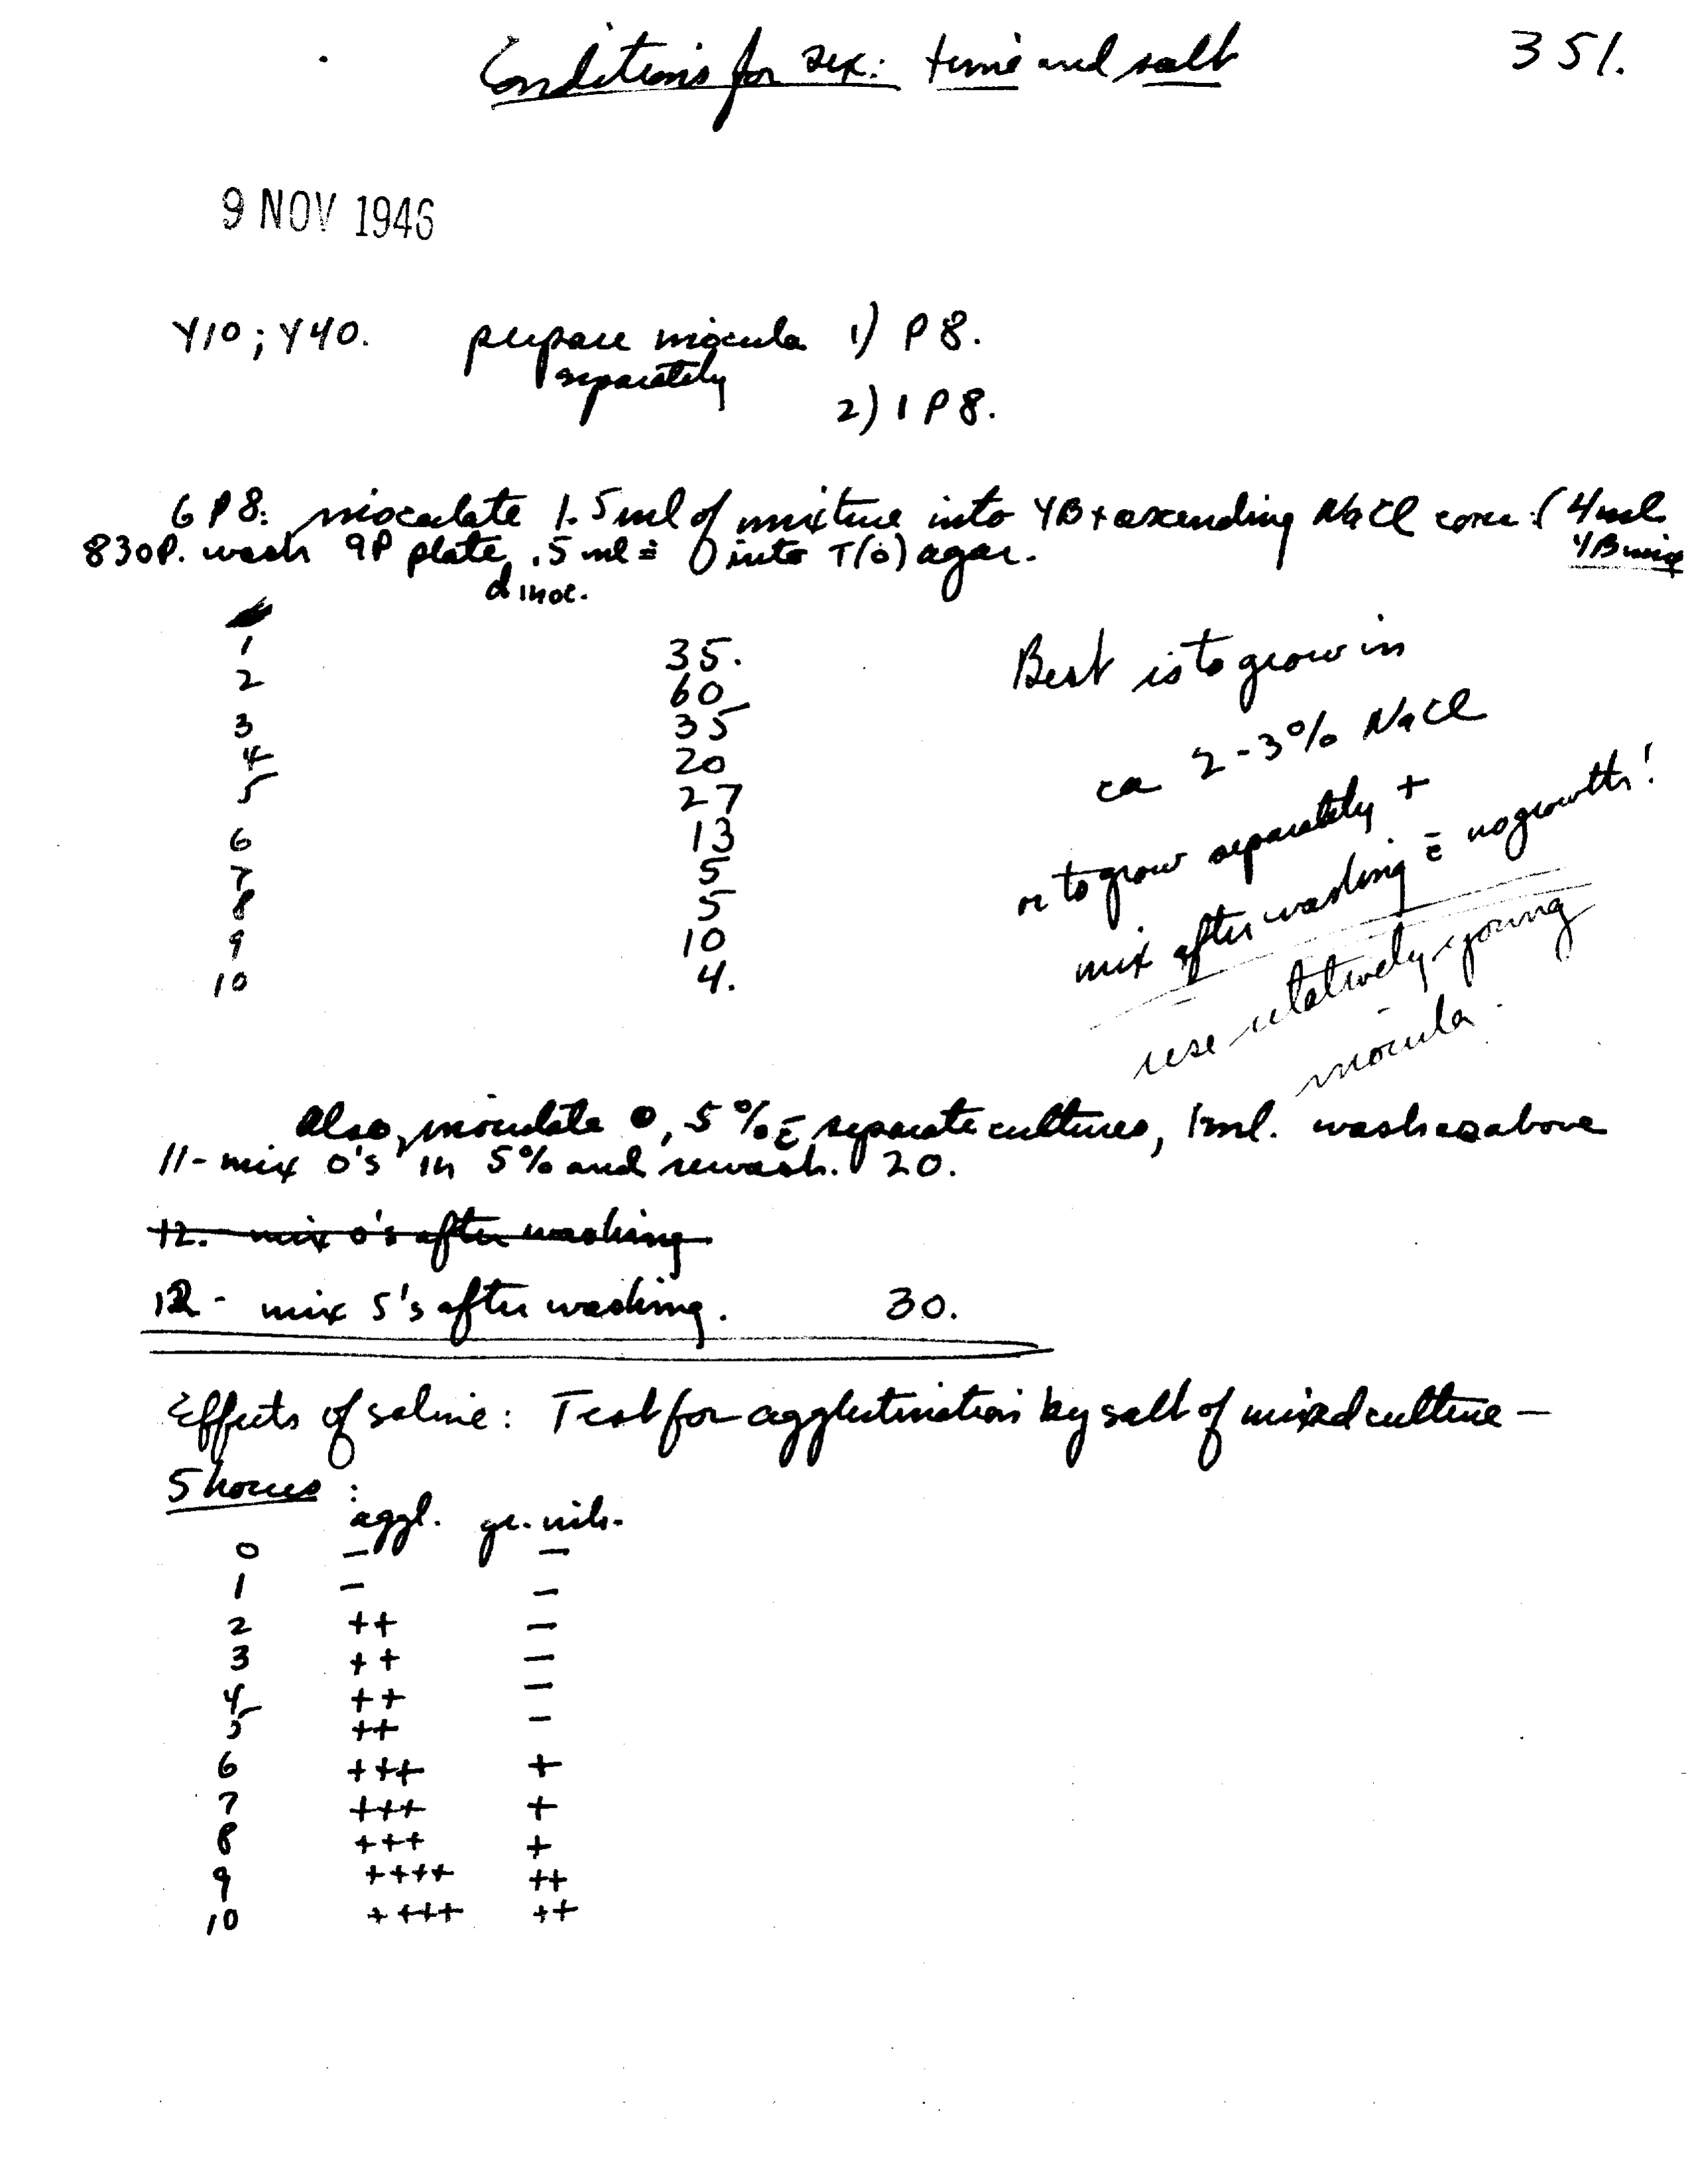 Conditions for sex: time and salt 351.
9 NOV 1946
Y10; Y40. prepare inocula 1) P8.
separately
2) 1P8.
6P8: inoculate 1.5 ml of mixture into YB + ascending NaCl conc. (4 ml
830P. wash 9P plate .5 ml = into T(o) agar. YB
d inoc.
1 35.
2 60
3 35
4 20
5 27
6 13
7 5
8 5
9 10
10 4.
Best is to grow in
ca 2-3% NaCl
or to grow separately +
mix after washing c̄ no growth!
use relatively young
inocula.
Also, inoculate 0, 5% c̄ separate cultures, 1ml. wash as above
11- mix 0's in 5% and rewash. 20.
12. mix 0's after washing
12- mix 5's after washing. 30.
Effects of saline: Test for agglutination by salt of mixed culture —
5 hours:
aggl. gr. inh.
0 — —
1 — —
2 ++ —
3 ++ —
4 ++ —
5 ++ —
6 +++ +
7 +++ +
8 +++ +
9 ++++ ++
10 ++++ ++